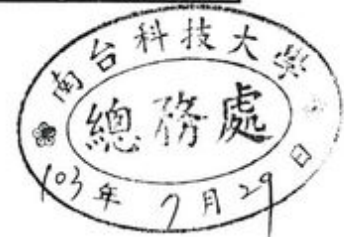 南台科技大學
總務處
103年7月29日